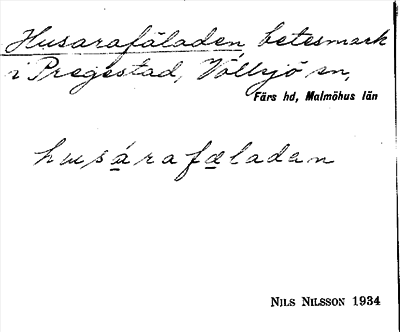 Husarafäladen, betesmark
i Pregestad, Vollsjö sn,
Färs hd, Malmöhus län
husárafæladan
NILS NILSSON 1934